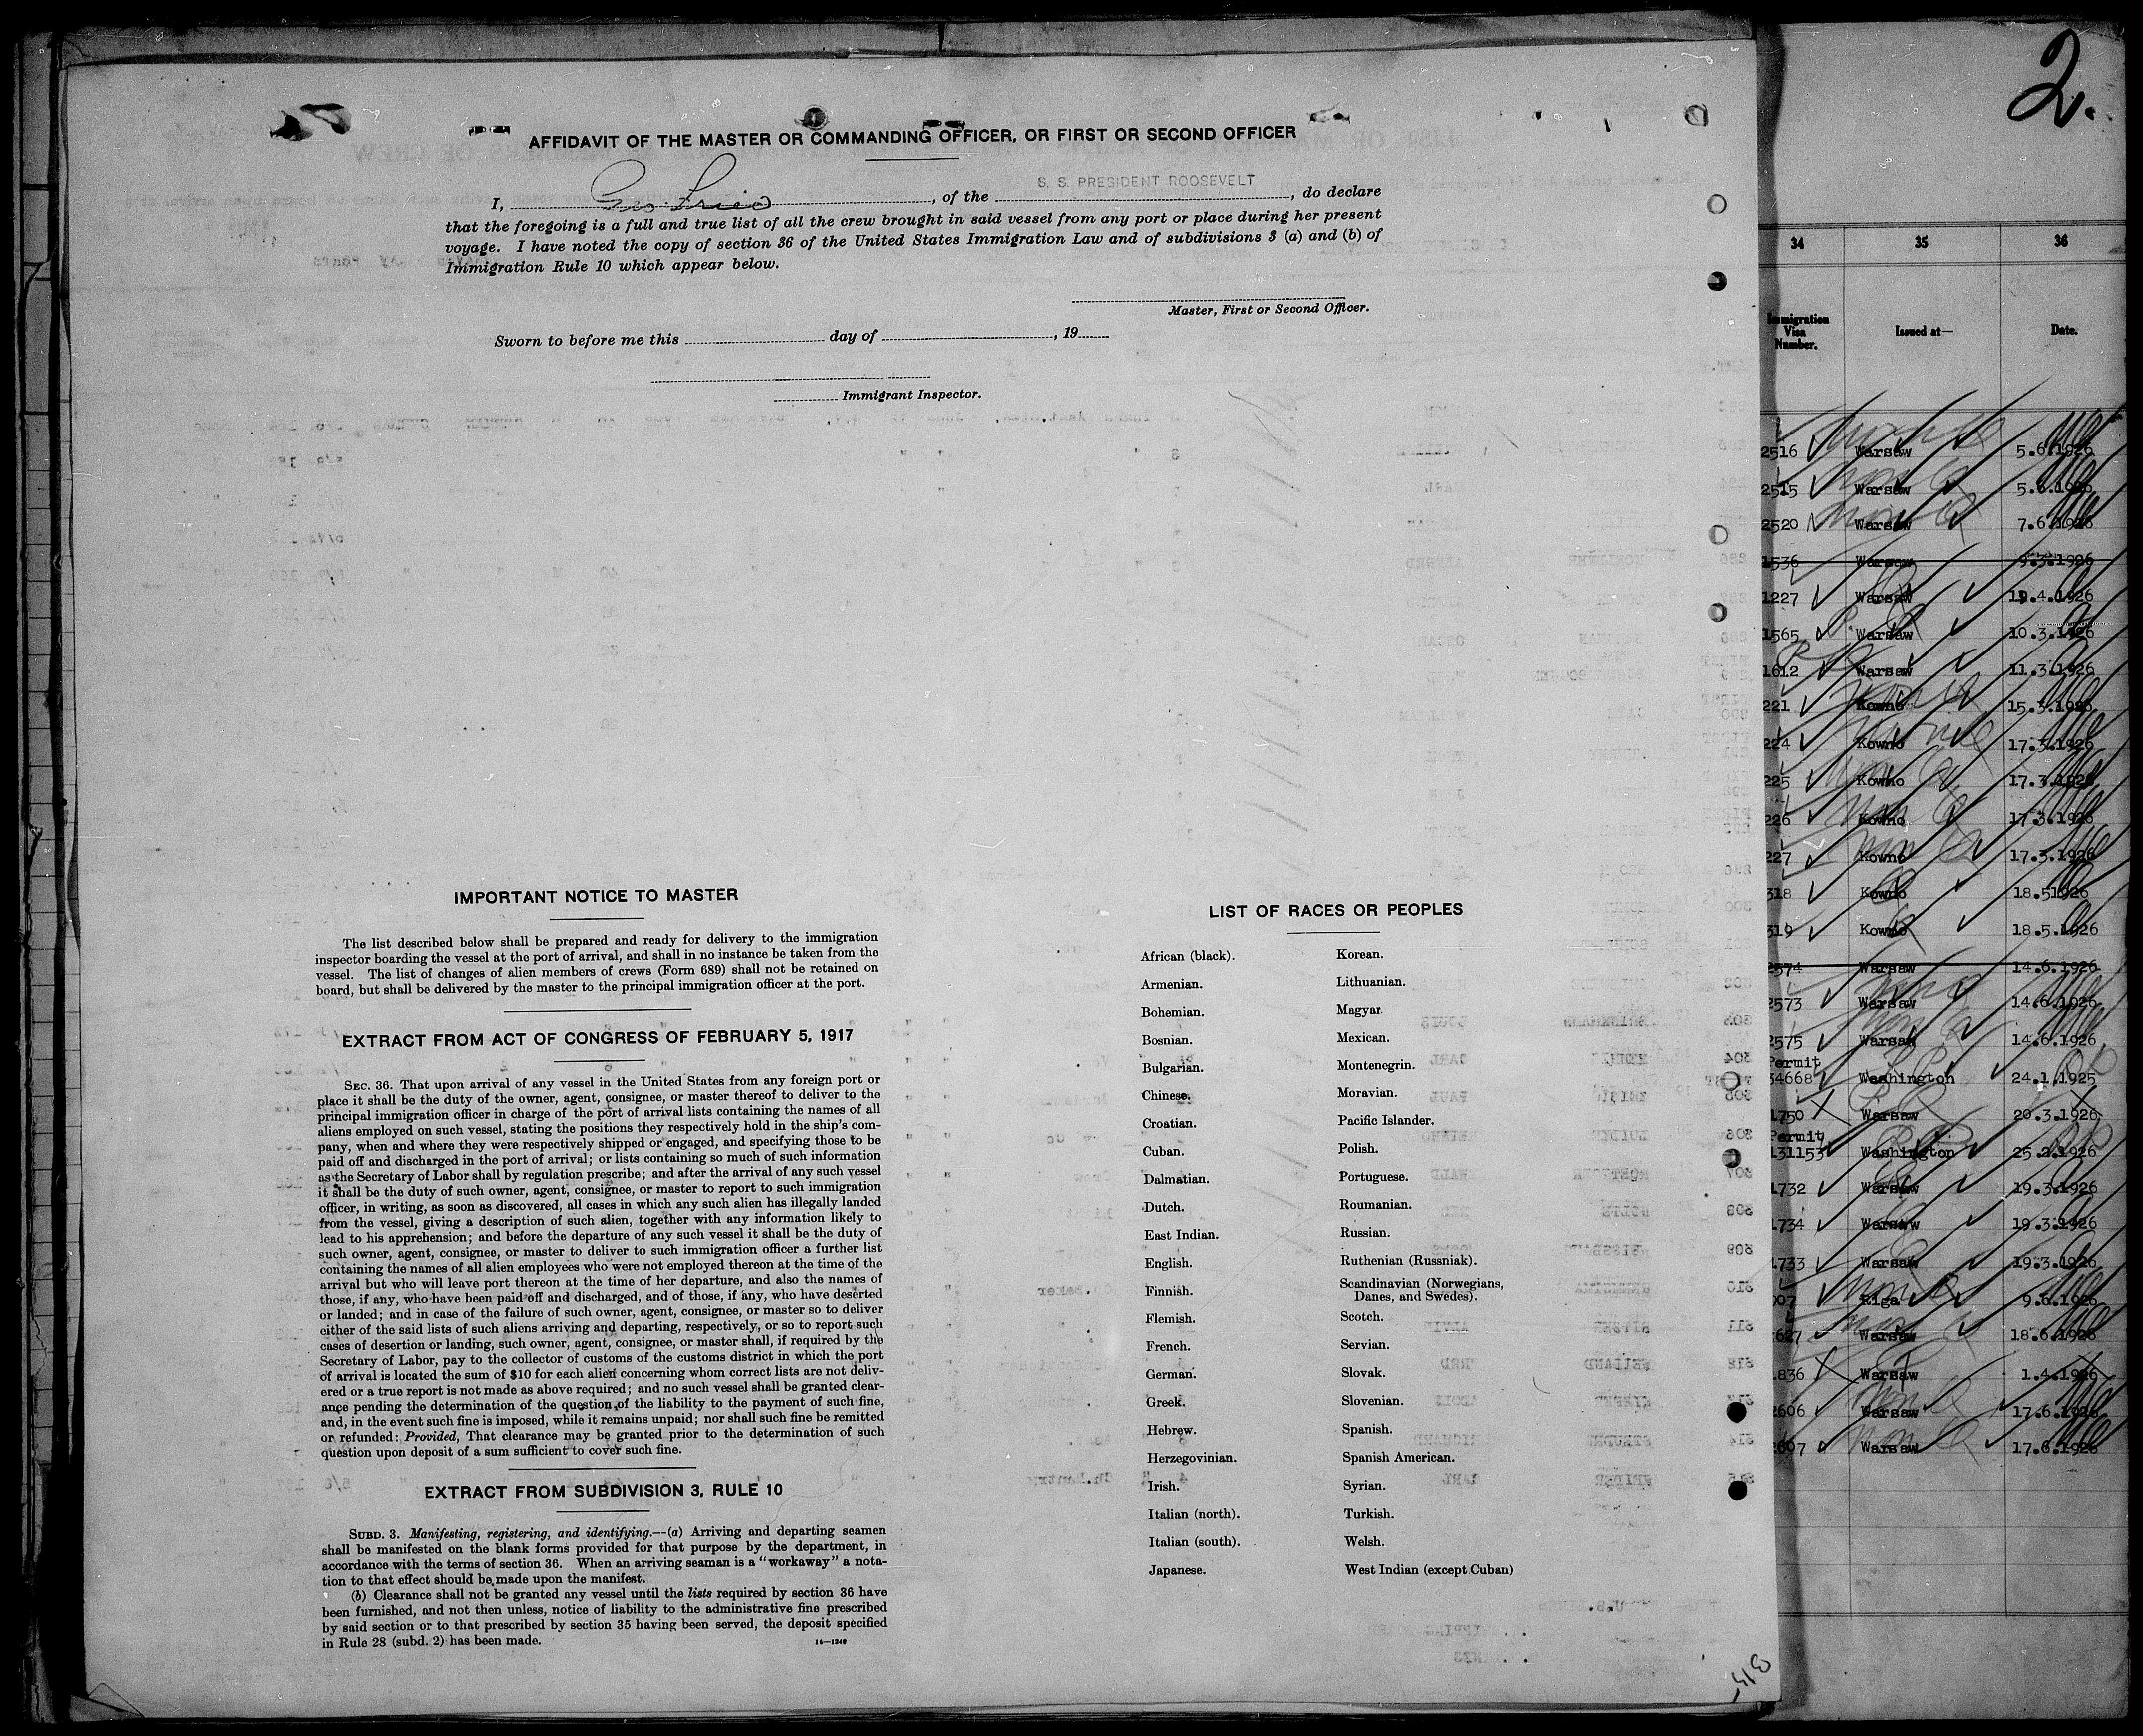 2.
AFFIDAVIT OF THE MASTER OR COMMANDING OFFICER, OR FIRST OR SECOND OFFICER
I, Geo. Fried, of the S. S. PRESIDENT ROOSEVELT, do declare
that the foregoing is a full and true list of all the crew brought in said vessel from any port or place during her present
voyage. I have noted the copy of section 36 of the United States Immigration Law and of subdivisions 3 (a) and (b) of
Immigration Rule 10 which appear below.
Master, First or Second Officer.
Sworn to before me this day of , 19
Immigrant Inspector.
IMPORTANT NOTICE TO MASTER
The list described below shall be prepared and ready for delivery to the immigration
inspector boarding the vessel at the port of arrival, and shall in no instance be taken from the
vessel. The list of changes of alien members of crews (Form 689) shall not be retained on
board, but shall be delivered by the master to the principal immigration officer at the port.
EXTRACT FROM ACT OF CONGRESS OF FEBRUARY 5, 1917
SEC. 36. That upon arrival of any vessel in the United States from any foreign port or
place it shall be the duty of the owner, agent, consignee, or master thereof to deliver to the
principal immigration officer in charge of the port of arrival lists containing the names of all
aliens employed on such vessel, stating the positions they respectively hold in the ship's com-
pany, when and where they were respectively shipped or engaged, and specifying those to be
paid off and discharged in the port of arrival; or lists containing so much of such information
as the Secretary of Labor shall by regulation prescribe; and after the arrival of any such vessel
it shall be the duty of such owner, agent, consignee, or master to report to such immigration
officer, in writing, as soon as discovered, all cases in which any such alien has illegally landed
from the vessel, giving a description of such alien, together with any information likely to
lead to his apprehension; and before the departure of any such vessel it shall be the duty of
such owner, agent, consignee, or master to deliver to such immigration officer a further list
containing the names of all alien employees who were not employed thereon at the time of the
arrival but who will leave port thereon at the time of her departure, and also the names of
those, if any, who have been paid off and discharged, and of those, if any, who have deserted
or landed; and in case of the failure of such owner, agent, consignee, or master so to deliver
either of the said lists of such aliens arriving and departing, respectively, or so to report such
cases of desertion or landing, such owner, agent, consignee, or master shall, if required by the
Secretary of Labor, pay to the collector of customs of the customs district in which the port
of arrival is located the sum of $10 for each alien concerning whom correct lists are not deliv-
ered or a true report is not made as above required; and no such vessel shall be granted clear-
ance pending the determination of the question of the liability to the payment of such fine,
and, in the event such fine is imposed, while it remains unpaid; nor shall such fine be remitted
or refunded: Provided, That clearance may be granted prior to the determination of such
question upon deposit of a sum sufficient to cover such fine.
EXTRACT FROM SUBDIVISION 3, RULE 10
SUBD. 3. Manifesting, registering, and identifying.—(a) Arriving and departing seamen
shall be manifested on the blank forms provided for that purpose by the department, in
accordance with the terms of section 36. When an arriving seaman is a "workaway" a nota-
tion to that effect should be made upon the manifest.
(b) Clearance shall not be granted any vessel until the lists required by section 36 have
been furnished, and not then unless, notice of liability to the administrative fine prescribed
by said section or to that prescribed by section 35 having been served, the deposit specified
in Rule 28 (subd. 2) has been made.
14—1240
LIST OF RACES OR PEOPLES
African (black).
Armenian.
Bohemian.
Bosnian.
Bulgarian.
Chinese.
Croatian.
Cuban.
Dalmatian.
Dutch.
East Indian.
English.
Finnish.
Flemish.
French.
German.
Greek.
Hebrew.
Herzegovinian.
Irish.
Italian (north).
Italian (south).
Japanese.
Korean.
Lithuanian.
Magyar
Mexican.
Montenegrin.
Moravian.
Pacific Islander.
Polish.
Portuguese.
Roumanian.
Russian.
Ruthenian (Russniak).
Scandinavian (Norwegians,
Danes, and Swedes).
Scotch.
Servian.
Slovak.
Slovenian.
Spanish.
Spanish American.
Syrian.
Turkish.
Welsh.
West Indian (except Cuban)
34 35 36
Immigration
Visa
Number.
Issued at—
Date.
2516 Warsaw 5.6.1926
2515 Warsaw 5.6.1926
2520 Warsaw 7.6.1926
1536 Warsaw 9.3.1926
1227 Warsaw 19.4.1926
1565 Warsaw 10.3.1926
1612 Warsaw 11.3.1926
221 Kowno 15.3.1926
224 Kowno 17.3.1926
225 Kowno 17.3.1926
226 Kowno 17.3.1926
227 Kowno 17.3.1926
318 Kowno 18.51926
319 Kowno 18.5.1926
2574 Warsaw 14.6.1926
2573 Warsaw 14.6.1926
2575 Warsaw 14.6.1926
Permit
34668 Washington 24.1.1925
1750 Warsaw 20.3.1926
Permit
131153 Washington 25.2.1926
1732 Warsaw 19.3.1926
1734 Warsaw 19.3.1926
1733 Warsaw 19.3.1926
907 Riga 9.6.1926
2627 Warsaw 18.6.1926
1836 Warsaw 1.4.1926
2606 Warsaw 17.6.1926
2607 Warsaw 17.6.1926